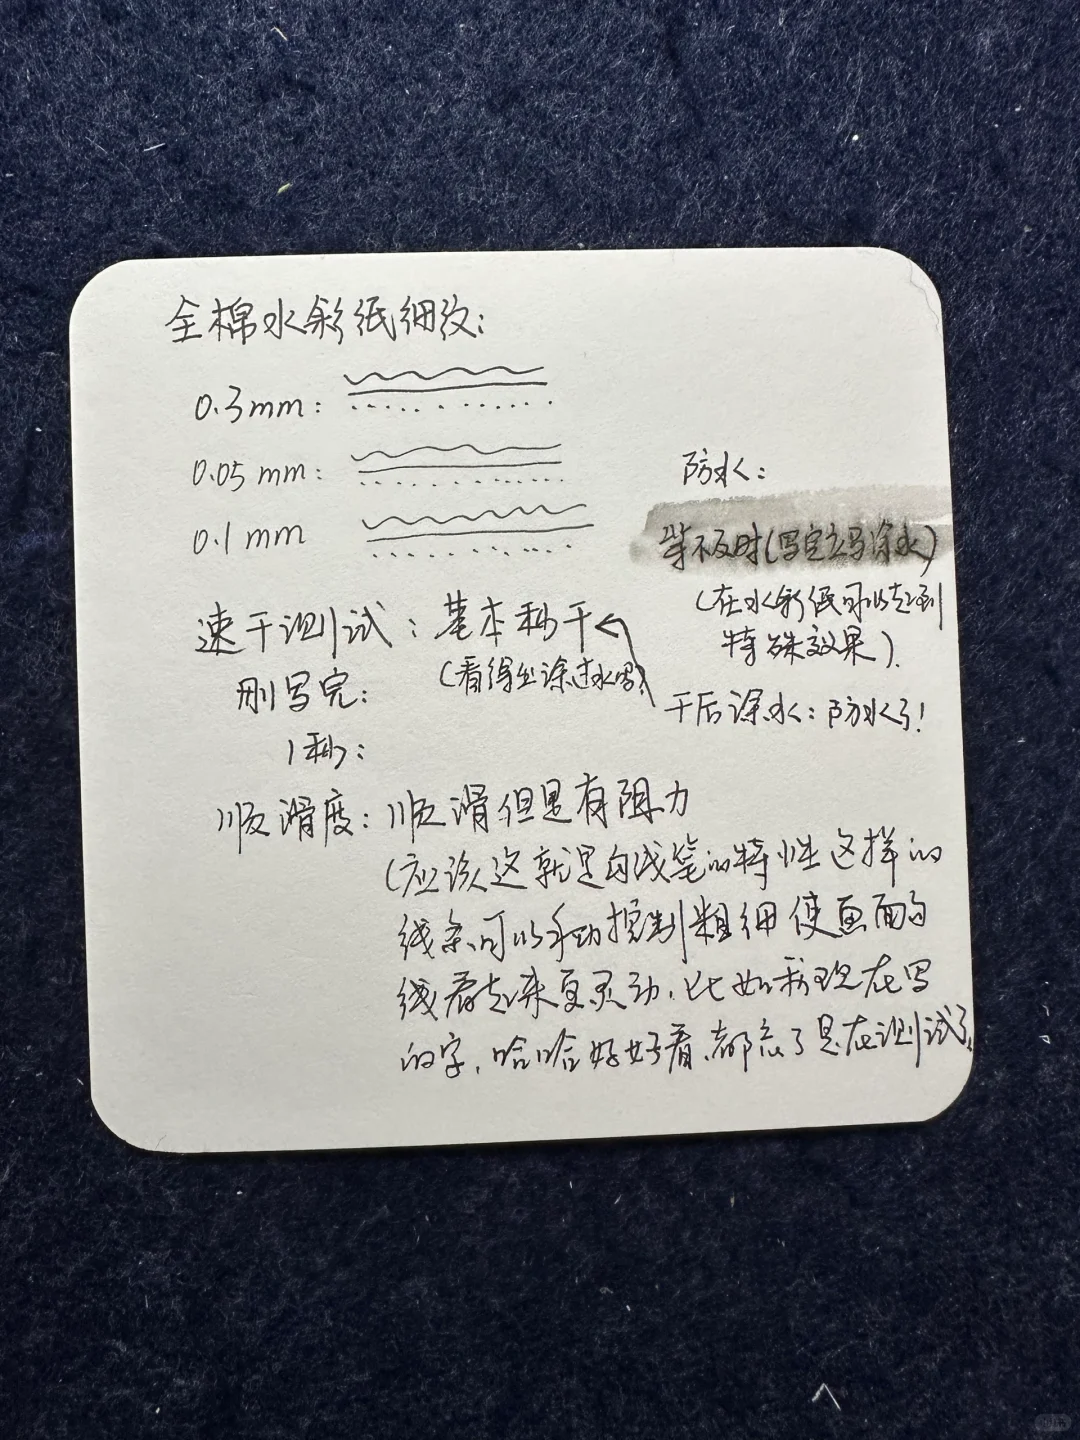 全棉水彩纸细纹：
0.3mm：
0.05mm：
0.1mm
防水：
等不及时（写完立马涂水）
（在水彩纸可以起到
特殊效果）.
干后涂水：防水了！
速干测试：基本秒干
（看得出涂过水吗）
刚写完：
1秒：
顺滑度：顺滑但是有阻力
（应该这就是勾线笔的特性这样的
线条可以手动控制粗细使画面的
线看起来更灵动，比如我现在写
的字，哈哈好好看，都忘了是在测试了。